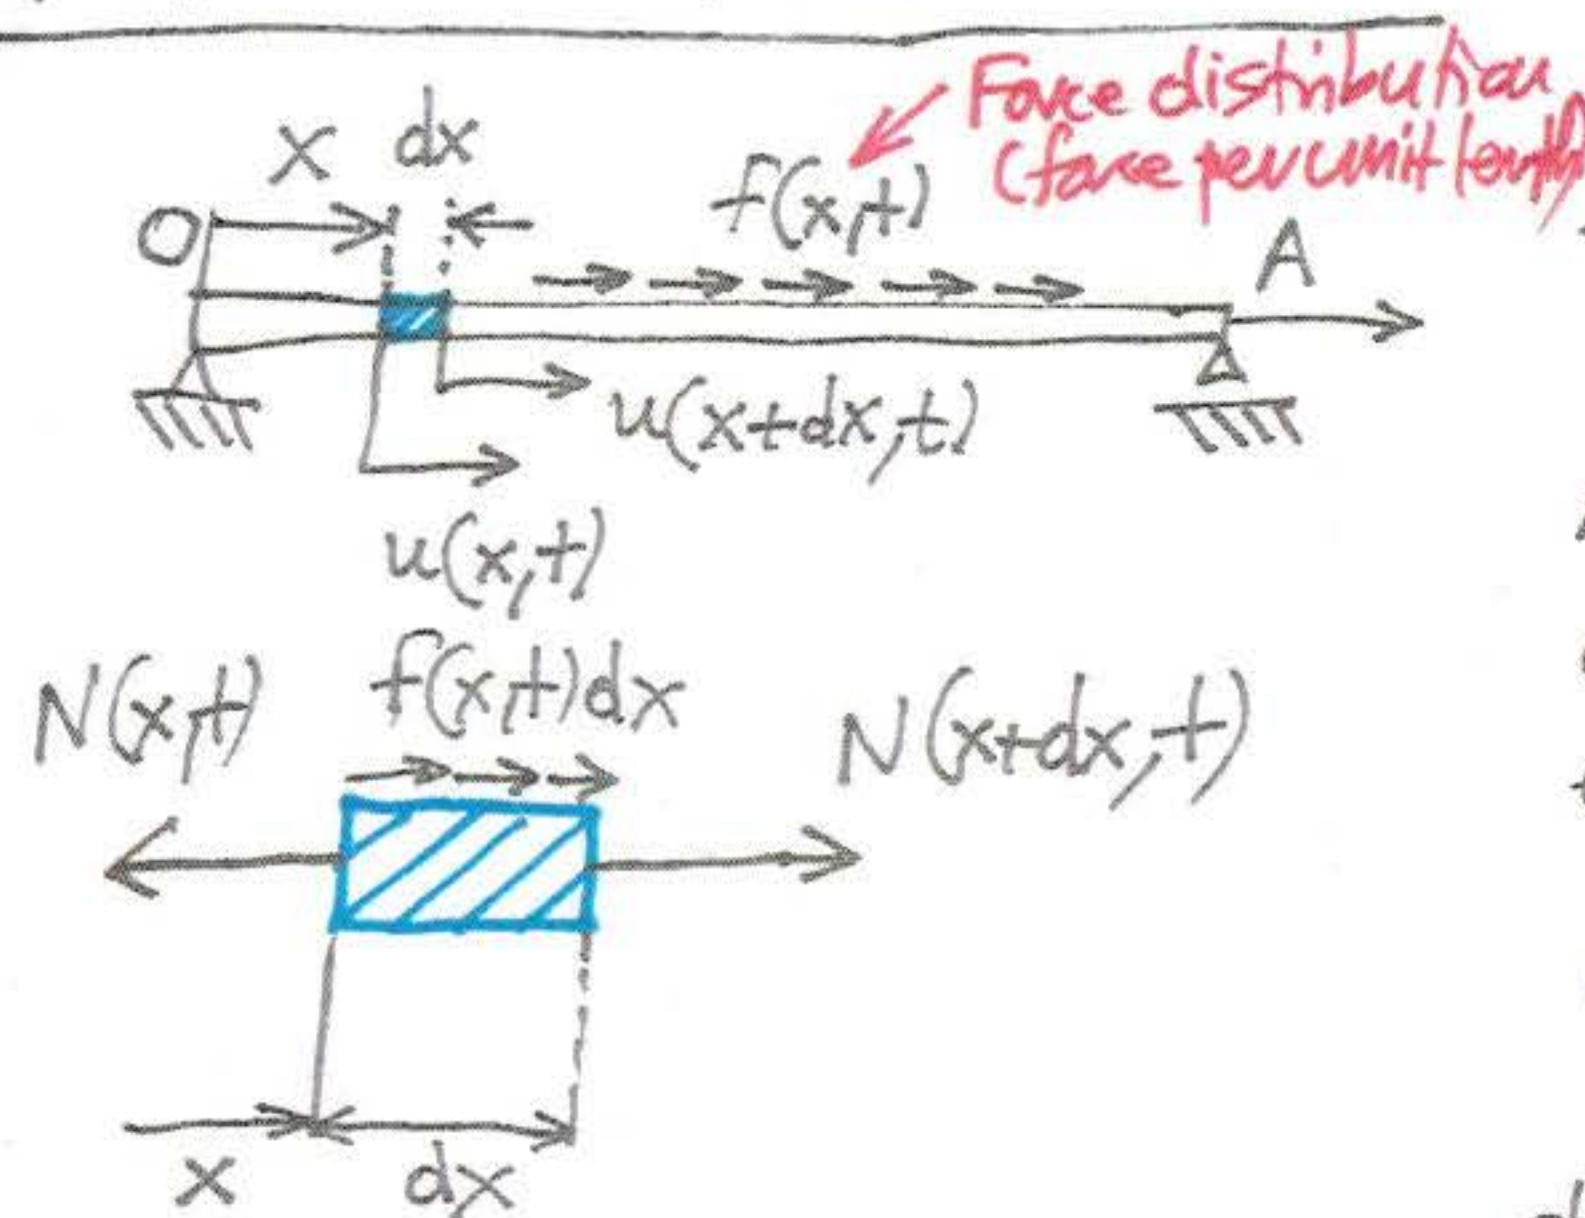 Force distribution
(force per unit length)
x dx
f(x,t)
O
A
u(x+dx,t)
u(x,t)
N(x,t)
f(x,t)dx
N(x+dx,t)
x dx